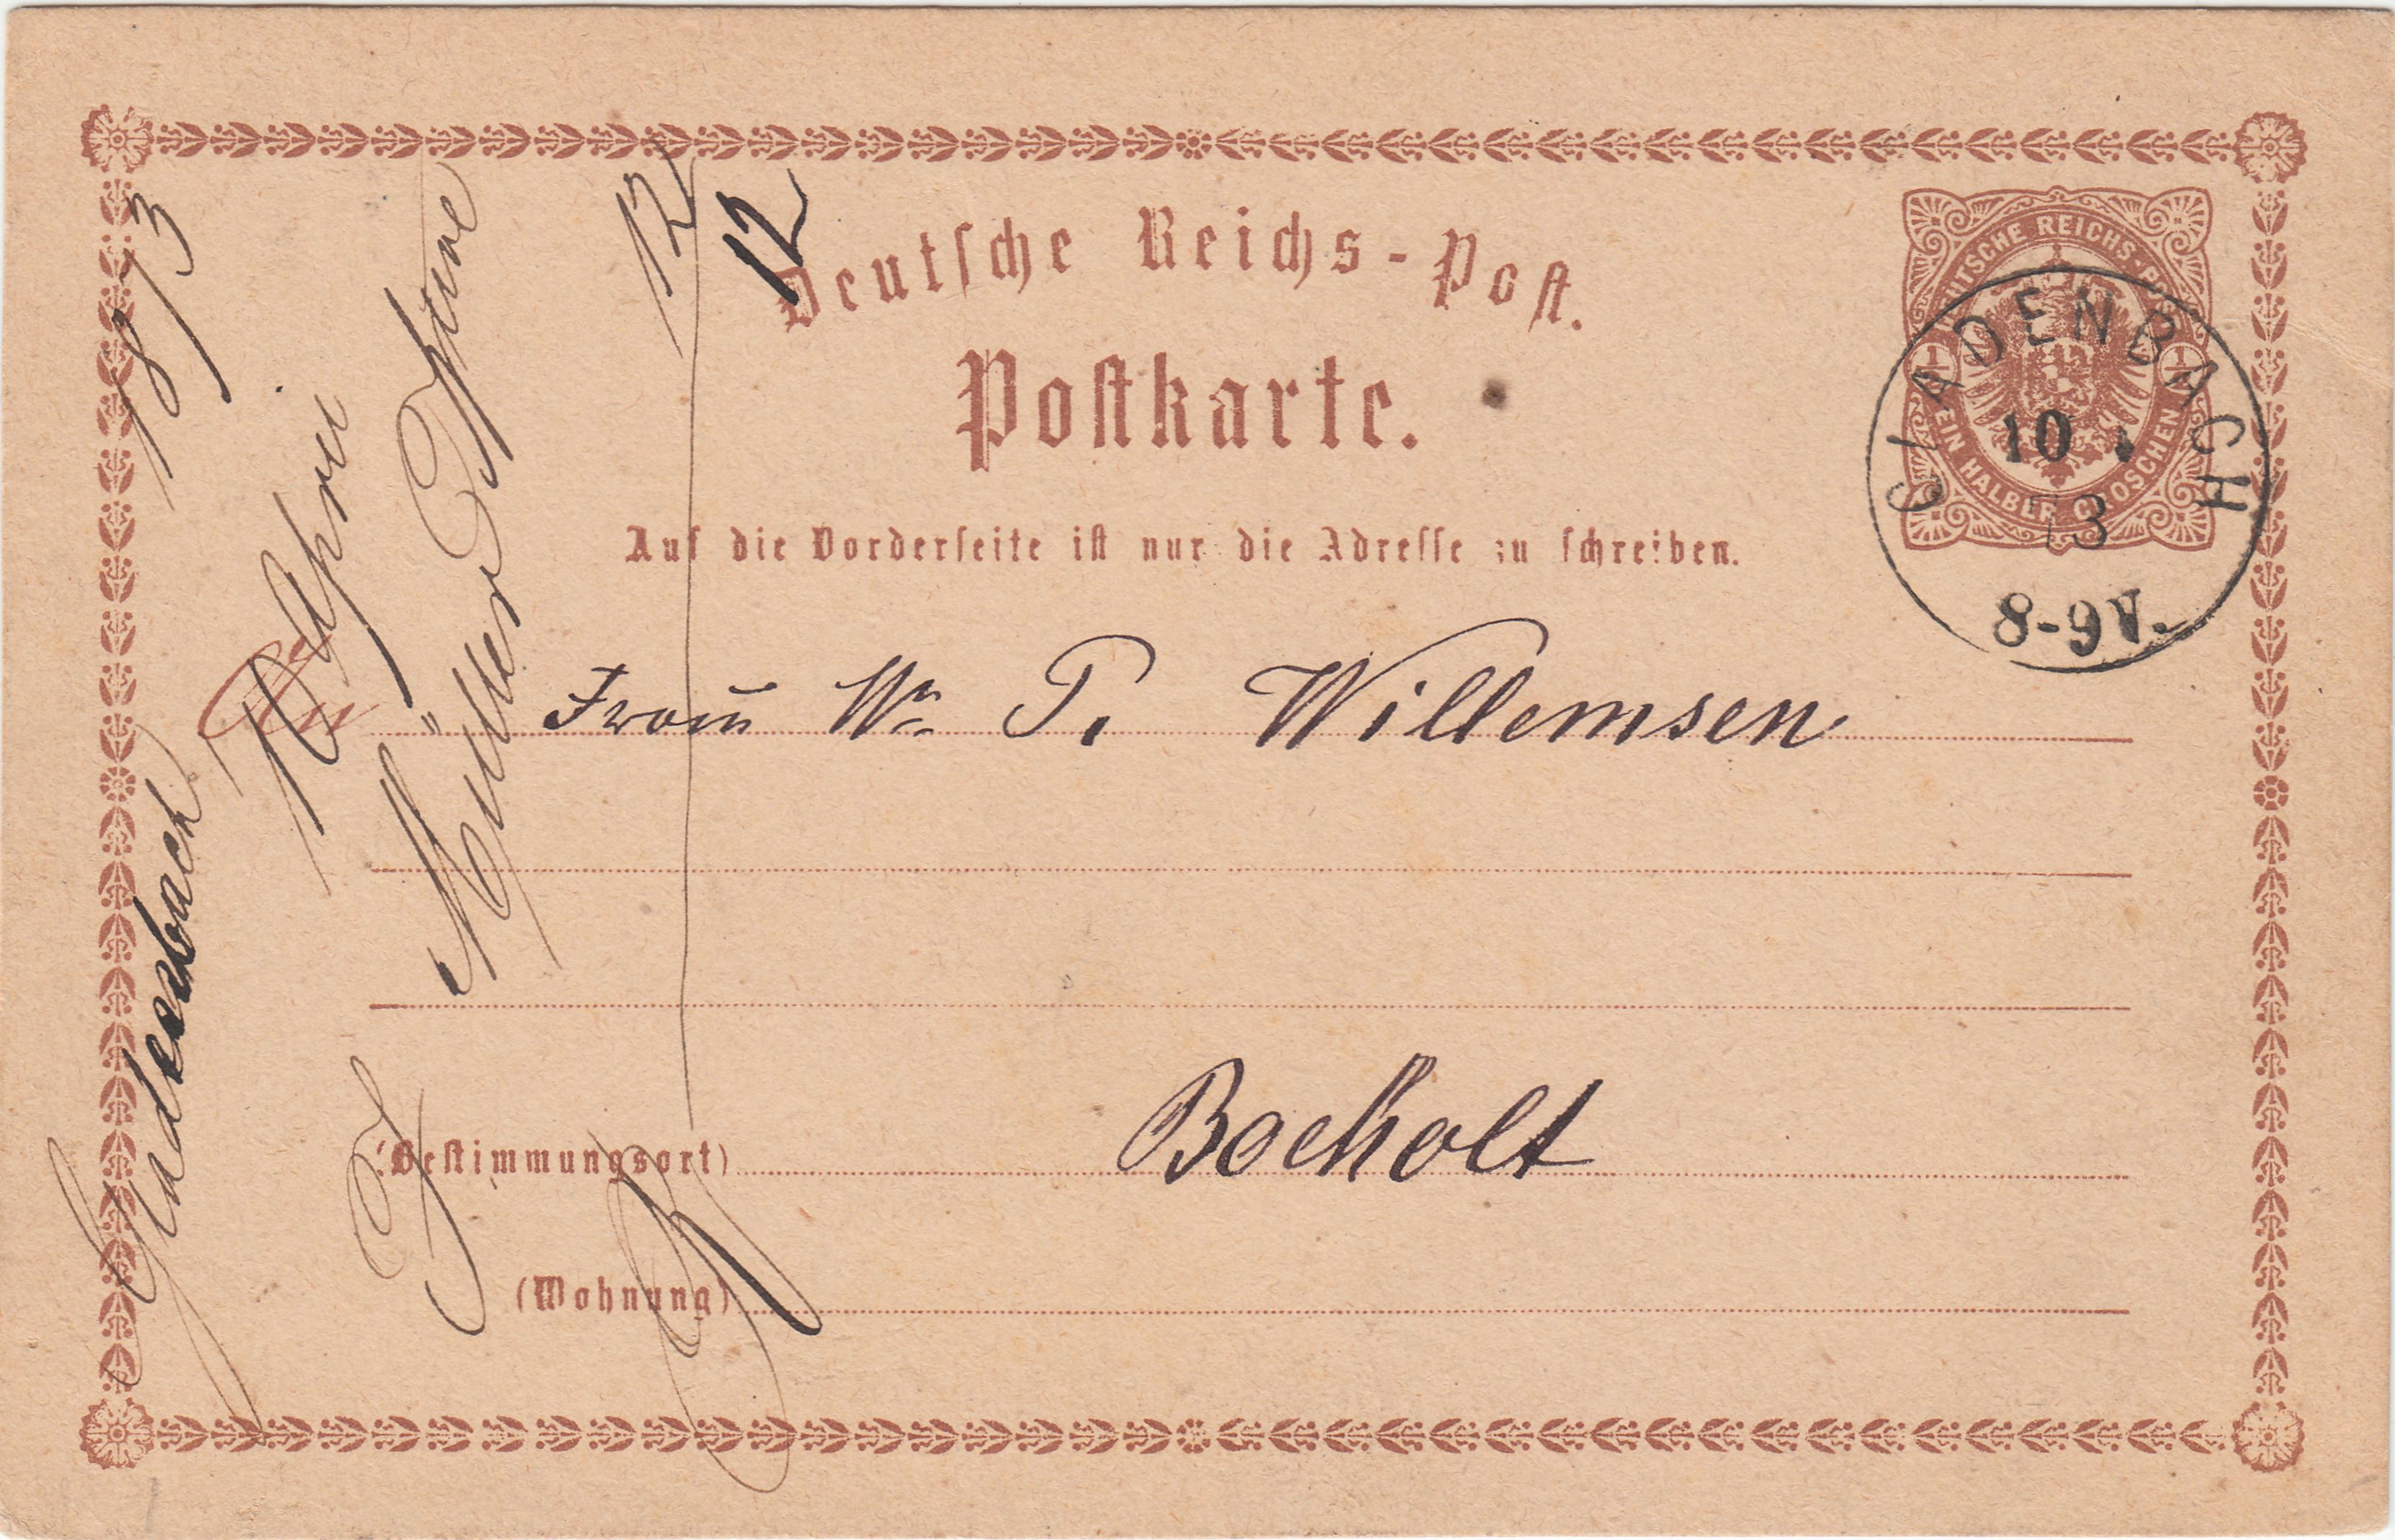 Deutsche Reichs-Post.
Postkarte.
Auf die Vorderseite ist nur die Adresse zu schreiben.
DEUTSCHE REICHS-POST
EIN HALBER GROSCHEN
GLADENBACH
10
73
8-9 V.
An Frau Wwe P. Willemsen
(Bestimmungsort) Bocholt
(Wohnung)
1873
Gladenbach
12 April
Müller
12
12